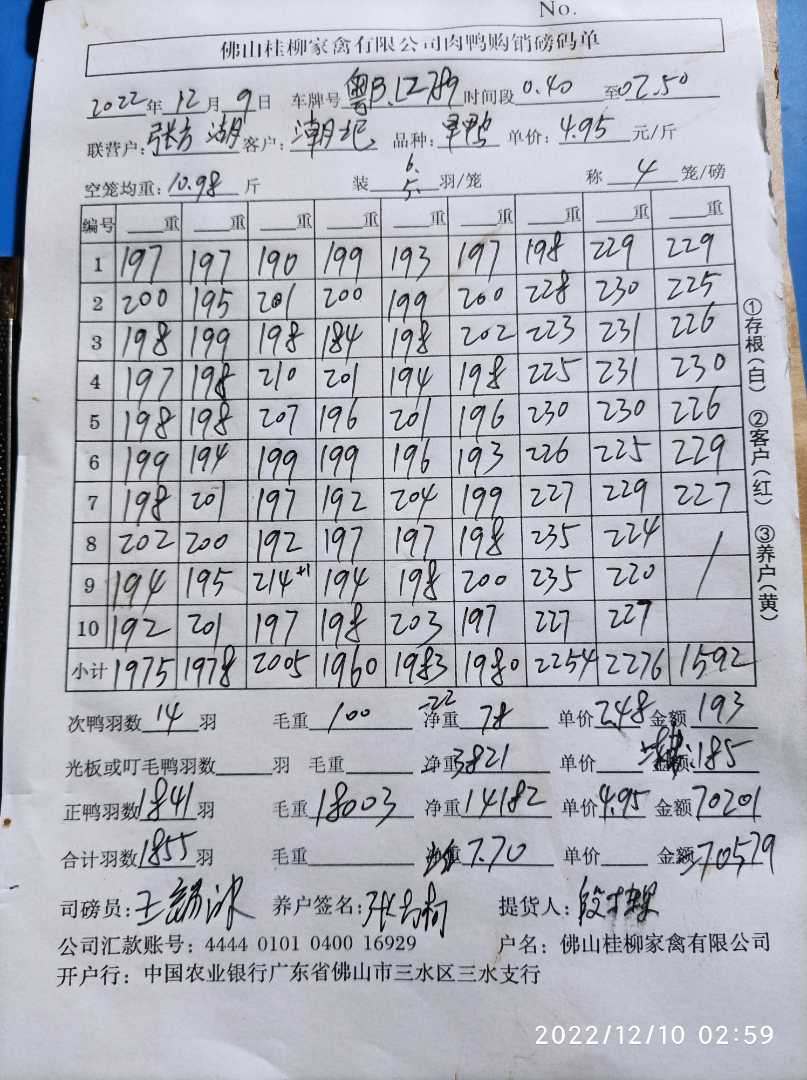 No.
佛山桂柳家禽有限公司肉鸭购销磅码单
2022年12月9日 车牌号 粤B.L2789 时间段 0.40 至 02.50
联营户: 客户: 潮记 品种: 旱鸭 单价: 4.95 元/斤
空笼均重: 10.98 斤 装 6.5. 羽/笼 称 4 笼/磅
编号 重 重 重 重 重 重 重 重 重
1 197 197 190 199 193 197 198 229 229
2 200 195 201 200 199 200 228 230 225
3 198 199 198 184 198 202 223 231 226
4 197 198 210 201 194 198 225 231 230
5 198 198 207 196 201 196 230 230 226
6 199 194 199 199 196 193 226 225 229
7 198 201 197 192 204 199 227 229 227
8 202 200 192 197 197 198 235 224 /
9 194 195 214+1 194 198 200 235 220
10 192 201 197 198 203 197 227 227
小计 1975 1978 2005 1960 1983 1980 2254 2276 1592
次鸭羽数 14 羽 毛重 100 -22 净重 78 单价 2.48 金额 193
光板或叮毛鸭羽数 羽 毛重 净重 3821 单价 金额: 185
正鸭羽数 1841 羽 毛重 18003 净重 14182 单价 4.95 金额 70201
合计羽数 1855 羽 毛重 净重 7.70 单价 金额 70579
司磅员: 养户签名: 提货人:
公司汇款账号: 4444 0101 0400 16929 户名: 佛山桂柳家禽有限公司
开户行: 中国农业银行广东省佛山市三水区三水支行
①存根(白) ②客户(红) ③养户(黄)
2022/12/10 02:59